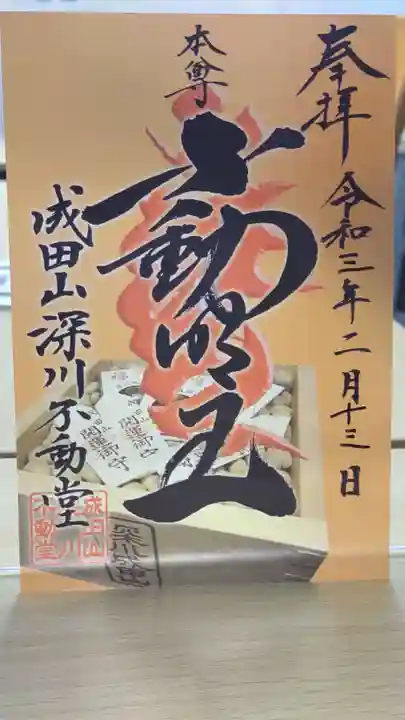 奉拝 令和三年二月十三日
本尊
不動明王
成田山深川不動堂
開運御守
開運御守
成田山
不動堂